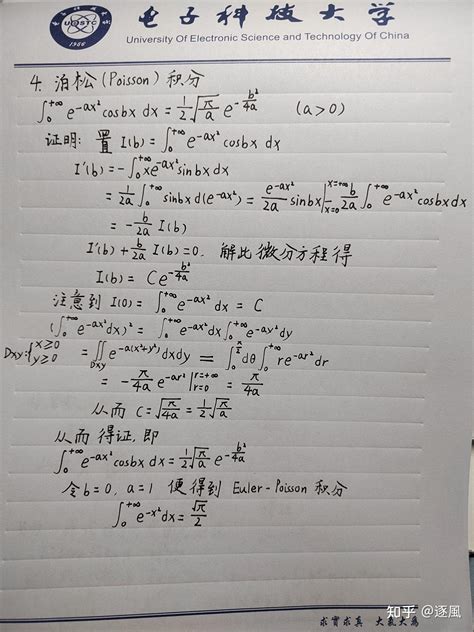 电子科技大学
University Of Electronic Science and Technology Of China
UESTC
1956
4. 泊松 (Poisson) 积分
∫₀^{+∞} e^{-ax²} cosbx dx = 1/2 √(π/a) e^{-b²/4a} (a>0)
证明: 置 I(b) = ∫₀^{+∞} e^{-ax²} cosbx dx
I'(b) = -∫₀^{+∞} xe^{-ax²} sinbx dx
= 1/2a ∫₀^{+∞} sinbx d(e^{-ax²}) = e^{-ax²}/2a sinbx |_{x=0}^{x=+∞} - b/2a ∫₀^{+∞} e^{-ax²} cosbx dx
= -b/2a I(b)
I'(b) + b/2a I(b) = 0. 解此微分方程得
I(b) = Ce^{-b²/4a}
注意到 I(0) = ∫₀^{+∞} e^{-ax²} dx = C
(∫₀^{+∞} e^{-ax²} dx)² = ∫₀^{+∞} e^{-ax²} dx ∫₀^{+∞} e^{-ay²} dy
Dxy: {x≥0 y≥0 = ∬_{Dxy} e^{-a(x²+y²)} dxdy = ∫₀^{π/2} dθ ∫₀^{+∞} re^{-ar²} dr
= -π/4a e^{-ar²} |_{r=0}^{r=+∞} = π/4a
从而 C = √(π/4a) = 1/2 √(π/a)
从而得证, 即
∫₀^{+∞} e^{-ax²} cosbx dx = 1/2 √(π/a) e^{-b²/4a}
令 b=0, a=1 便得到 Euler-Poisson 积分
∫₀^{+∞} e^{-x²} dx = √π/2
知乎 @逐風
求實求真 大氣大爲